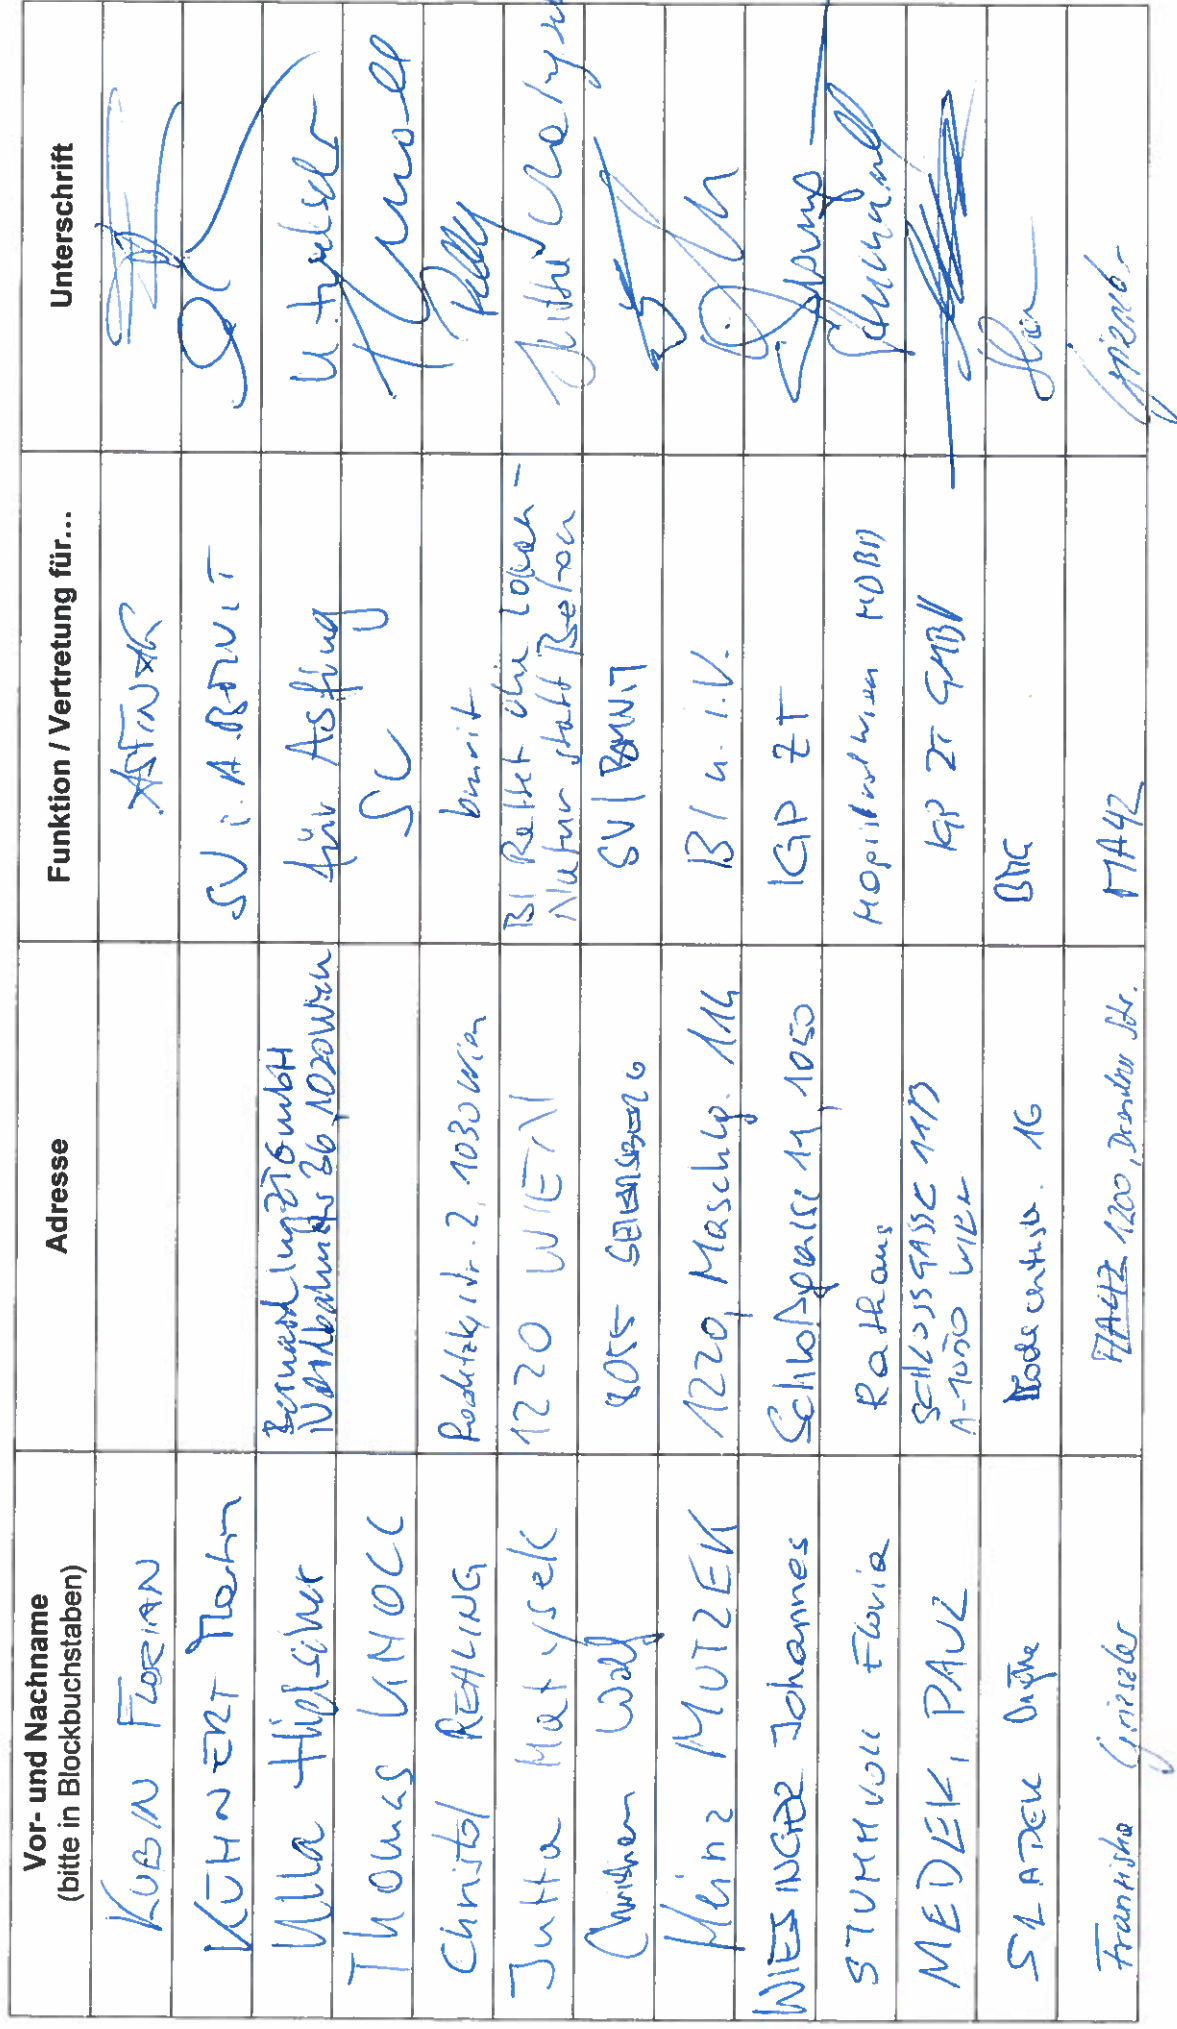 Vor- und Nachname
(bitte in Blockbuchstaben)
Adresse
Funktion / Vertretung für...
Unterschrift
KUBIN FLORIAN
ASFINAG
KÜHNERT Martin
SV i.A. BMVIT
Ulla Hipfinger
Bernard Ing ZT GmbH
Nordbahnstr 36, 1020 Wien
für Asfinag
Thomas KNOLL
SV
Knoll
Christof REHLING
Radetzkystr. 2, 1030 Wien
bmvit
Jutta Matysek
1220 WIEN
BI Rettet die Lobau -
Natur statt Beton
Jutta Matysek
Christian Wolf
8055 SEIERSBERG
SV / BMVIT
Heinz MUTZEK
1220, Maschlg. 114
BI u. i.V.
WIESINGER Johannes
Schloßgasse 11, 1050
IGP ZT
STUMMVOLL Flovia
Rathaus
MDBD
MEDEK, PAUL
SCHLOSSGASSE 11/3
A-1050 WIEN
IGP ZT GMBH
SLADEK
Modecenterstr. 16
BMG
Franziska Grieszler
MA42 1200, Dresdner Str.
MA42